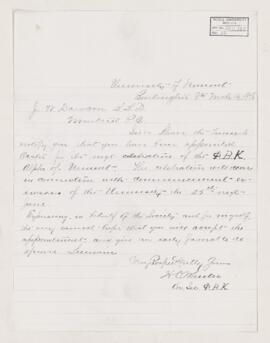 University of Vermont
Burlington
J. W. Dawson LL.D.
Montreal P.Q.
Sir: I have the honor to
notify you that you have been appointed
for the next celebration of the Φ.B.K.
Alpha of Vermont. The celebration will occur
in connection with commencement ex-
ercises of the University the 25th next
June
Expressing in behalf of the Society and for myself
the very earnest hope that you will accept the
appointment and give an early favorable re-
sponse I remain
Very Respectfully Yours
H C
Cor. Sec. Φ.B.K